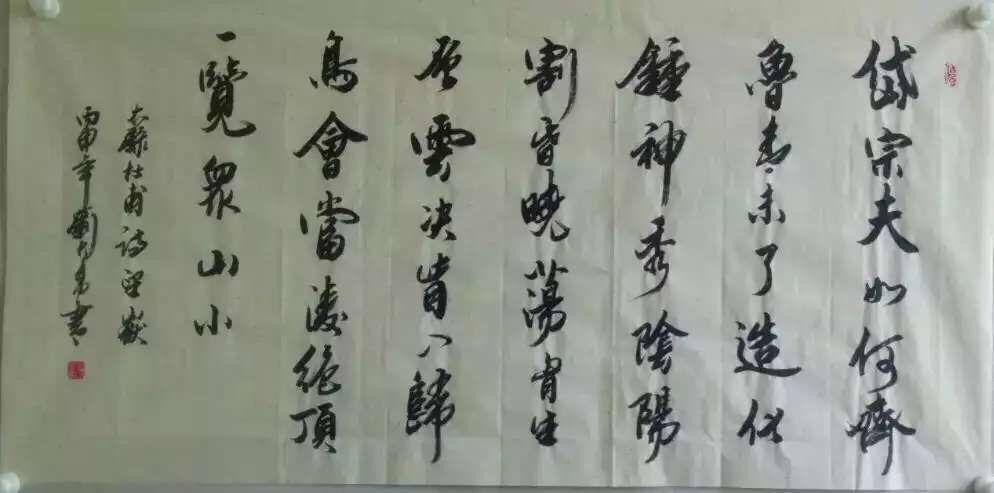 岱宗夫如何齊
魯青未了造化
鍾神秀陰陽
割昏曉蕩胷生
層雲决眥入歸
鳥會當凌絶頂
一覽衆山小
錄杜甫詩望嶽
丙申年劉書